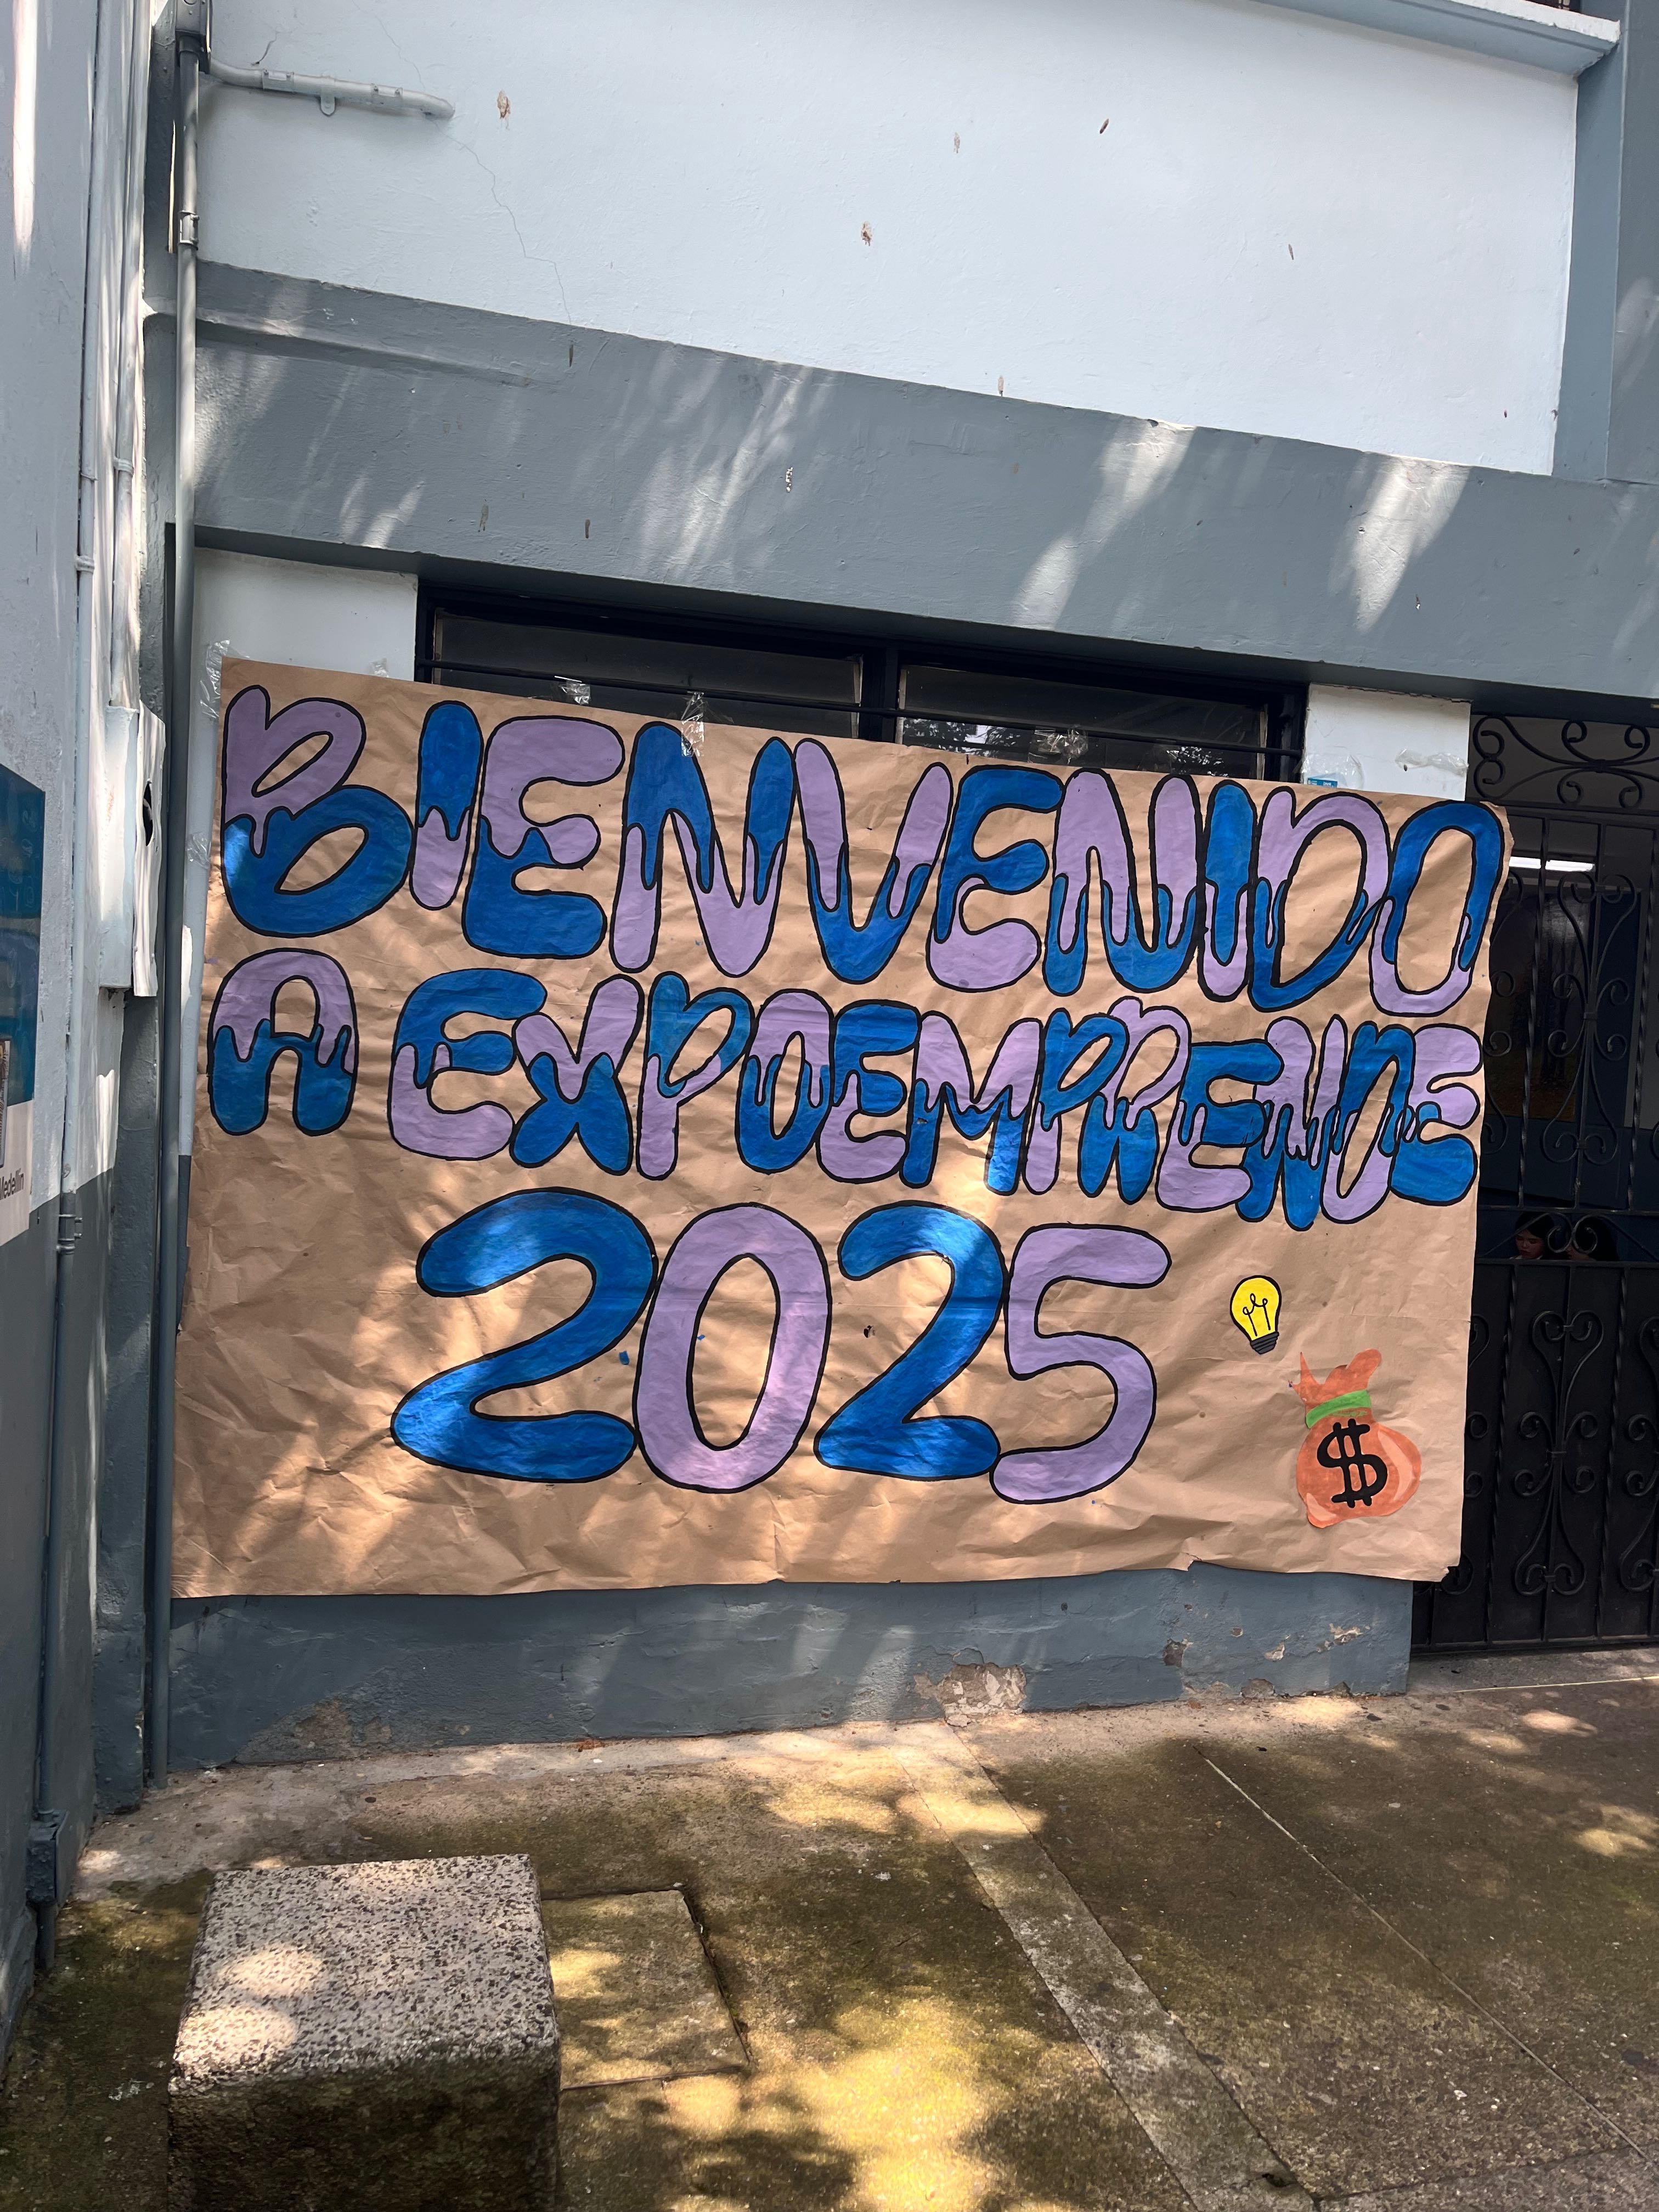 BIENVENIDO
A EXPOEMPRENDE
2025
$
Medellín